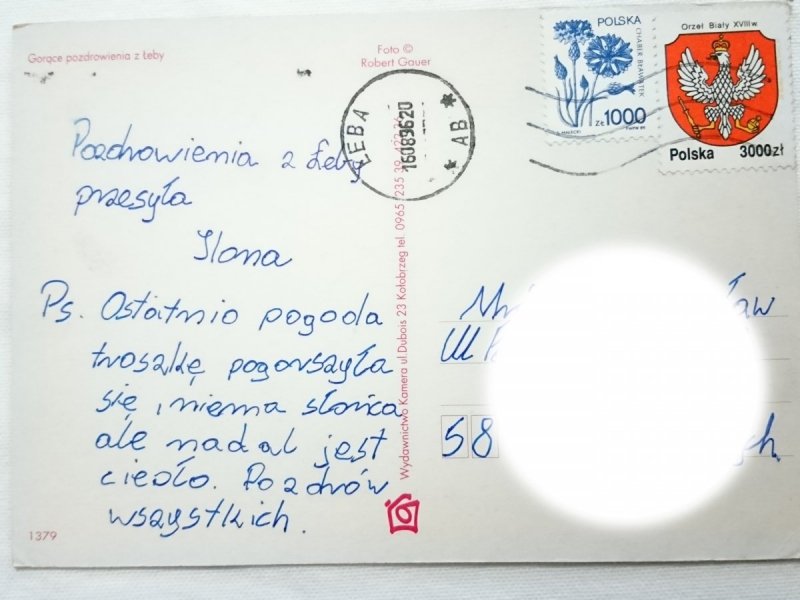 Gorące pozdrowienia z Łeby
Foto ©
Robert Gauer
POLSKA
CHABER BŁAWATEK
ZŁ 1000
Orzeł Biały XVIII w.
Polska 3000zł
ŁEBA
16089620
* AB *
Pozdrowienia z Łeby
przesyła
Ilona
Ps. Ostatnio pogoda
troszkę pogorszyła
się i niema słońca
ale nadal jest
ciepło. Pozdrów
wszystkich.
Wydawnictwo Kamera ul.Dubois 23 Kołobrzeg tel. 0965/235 39
58
1379